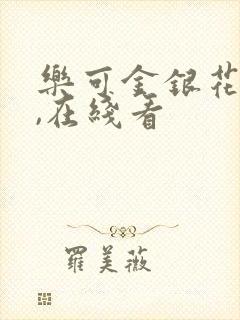 樂可金銀花
,在綫看
羅美薇